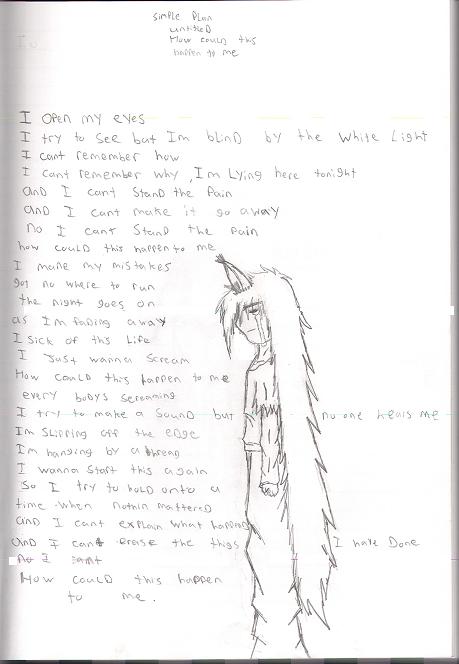 Simple Plan
untitled
How could this
happen to me
I open my eyes
I try to see but Im blind by the white light
I cant remember how
I cant remember why, Im lying here tonight
and I cant stand the pain
and I cant make it go away
no I cant stand the pain
how could this happen to me
I made my mistakes
got no where to run
the night goes on
as Im fading away
I sick of ths life
I Just wanna scream
How could this happen to me
every bodys screaming
I try to make a sound but no one hears me
Im slipping off the edge
Im hanging by a thread
I wanna start this again
So I try to hold onto a
time when nothin mattered
and I cant explain what happend
and I cant erase the thigs I have Done
no I cant
How could this happen
to me.